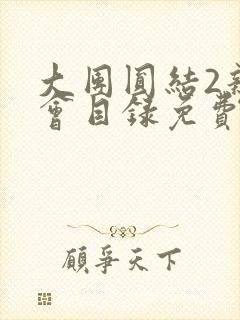 大团圆结2新
会目録免費
顧爭天下